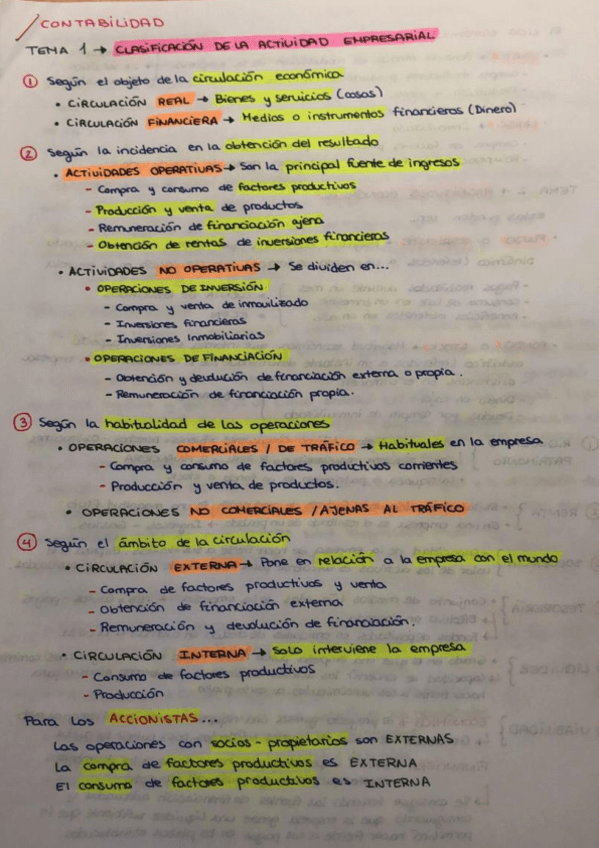 CONTABILIDAD
TEMA 1 → CLASIFICACIÓN DE LA ACTIVIDAD EMPRESARIAL
① Según el objeto de la circulación económica
• CIRCULACIÓN REAL → Bienes y servicios (cosas)
• CIRCULACIÓN FINANCIERA → Medios o instrumentos financieros (Dinero)
② Según la incidencia en la obtención del resultado
• ACTIVIDADES OPERATIVAS → Son la principal fuente de ingresos
- Compra y consumo de factores productivos
- Producción y venta de productos
- Remuneración de financiación ajena
- Obtención de rentas de inversiones financieras
• ACTIVIDADES NO OPERATIVAS → Se dividen en...
• OPERACIONES DE INVERSIÓN
- Compra y venta de inmovilizado
- Inversiones financieras
- Inversiones Inmobiliarias
• OPERACIONES DE FINANCIACIÓN
- Obtención y devolución de financiación externa o propia.
- Remuneración de financiación propia.
③ Según la habitualidad de las operaciones
• OPERACIONES COMERCIALES / DE TRÁFICO → Habituales en la empresa
- Compra y consumo de factores productivos corrientes
- Producción y venta de productos.
• OPERACIONES NO COMERCIALES / AJENAS AL TRÁFICO
④ Según el ámbito de la circulación
• CIRCULACIÓN EXTERNA → Pone en relación a la empresa con el mundo
- Compra de factores productivos y venta
- Obtención de financiación externa
- Remuneración y devolución de financiación.
• CIRCULACIÓN INTERNA → Solo interviene la empresa
- Consumo de factores productivos
- Producción
Para los ACCIONISTAS...
Las operaciones con socios-propietarios son EXTERNAS
La compra de factores productivos es EXTERNA
El consumo de factores productivos es INTERNA